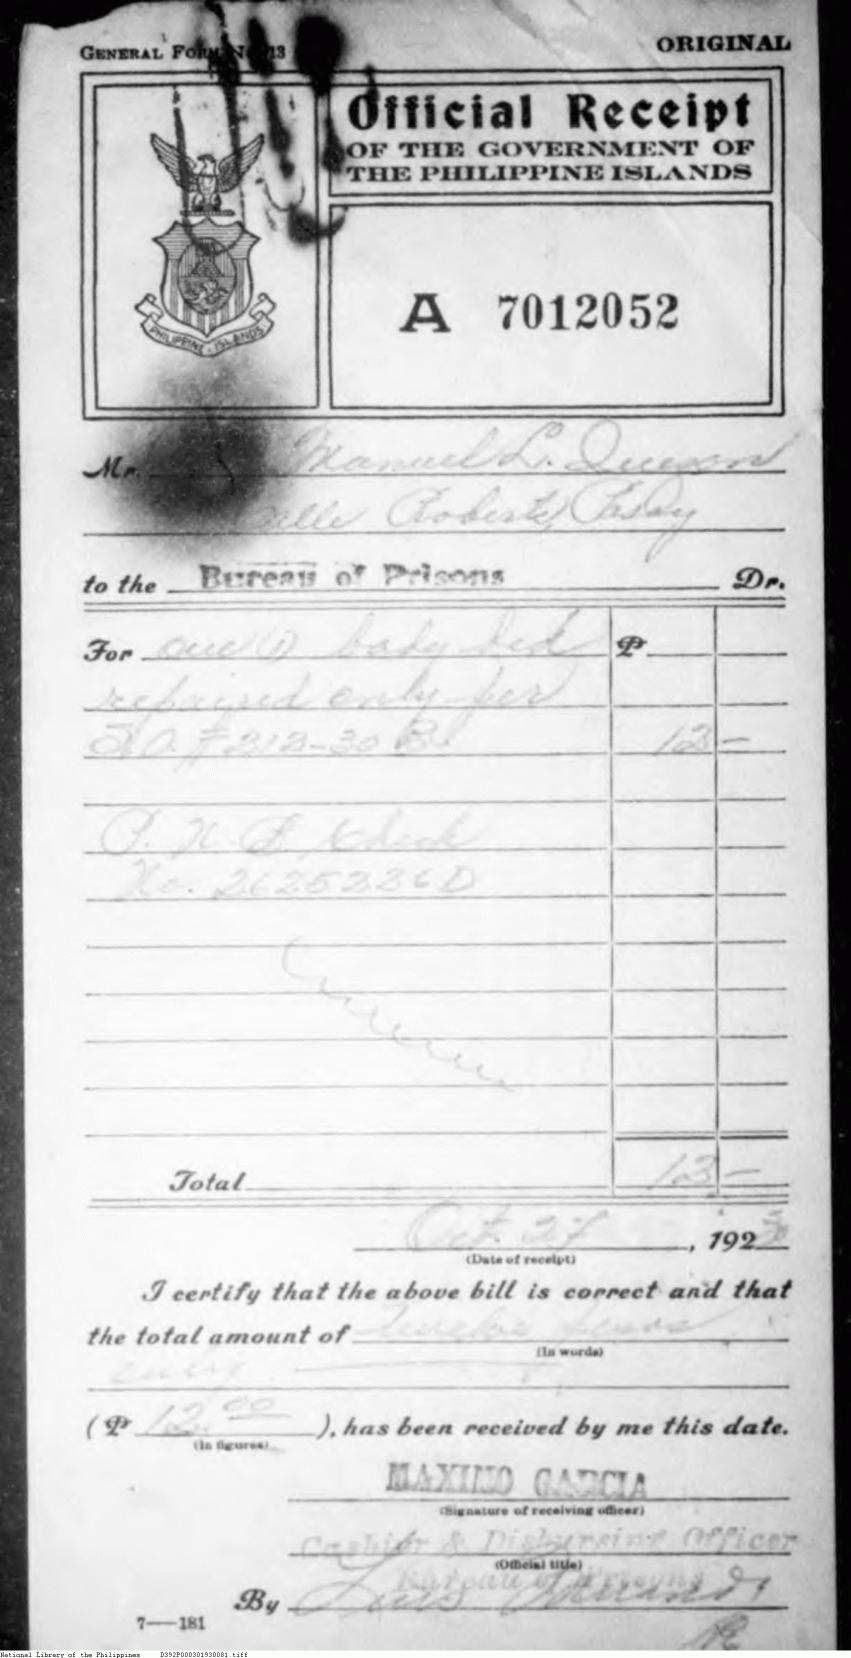 GENERAL FORM No. 13
ORIGINAL
Official Receipt
OF THE GOVERNMENT OF
THE PHILIPPINE ISLANDS
PHILIPPINE ISLANDS
A 7012052
Mr. Manuel L. Quezon
Calle Roberts, Pasay
to the Bureau of Prisons Dr.
For one (1) baby bed ₱
repaired only per
#212-30 12-
P. N. B. Check
No. 2625226D
Total 12-
Oct. 27, 1923
(Date of receipt)
I certify that the above bill is correct and that
the total amount of Twelve pesos
(In words)
only
(₱ 12.00), has been received by me this date.
(In figures)
MAXIMO GARCIA
(Signature of receiving officer)
Cashier & Disbursing Officer
(Official title)
Bureau of Prisons
By Luis
7—181
National Library of the Philippines D392P000301930081.tiff